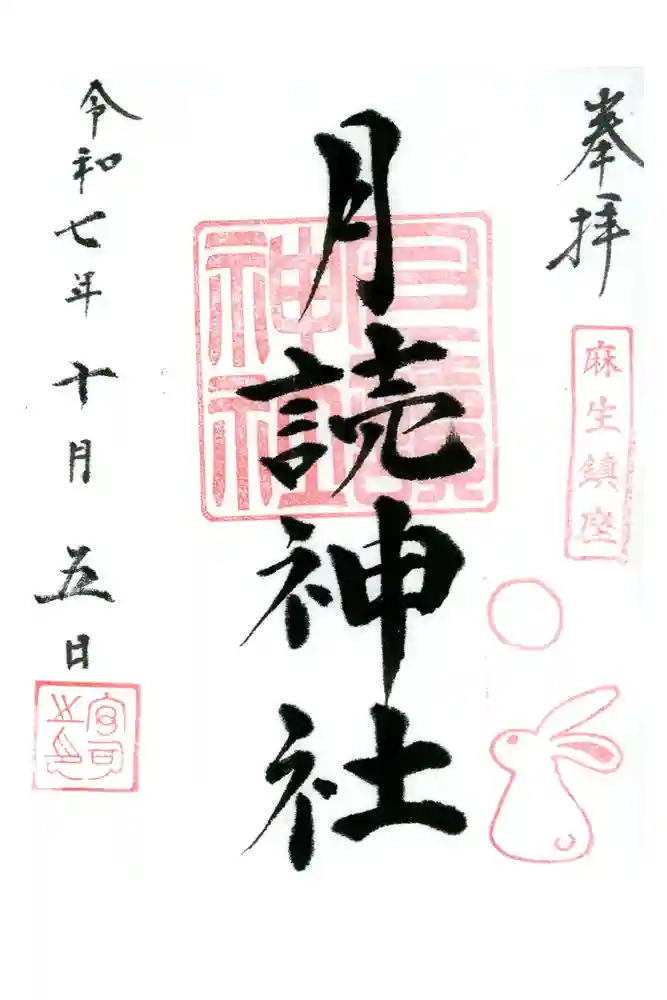 奉拝
麻生鎮座
月読神社
月読神社
令和七年十月五日
宮司之印